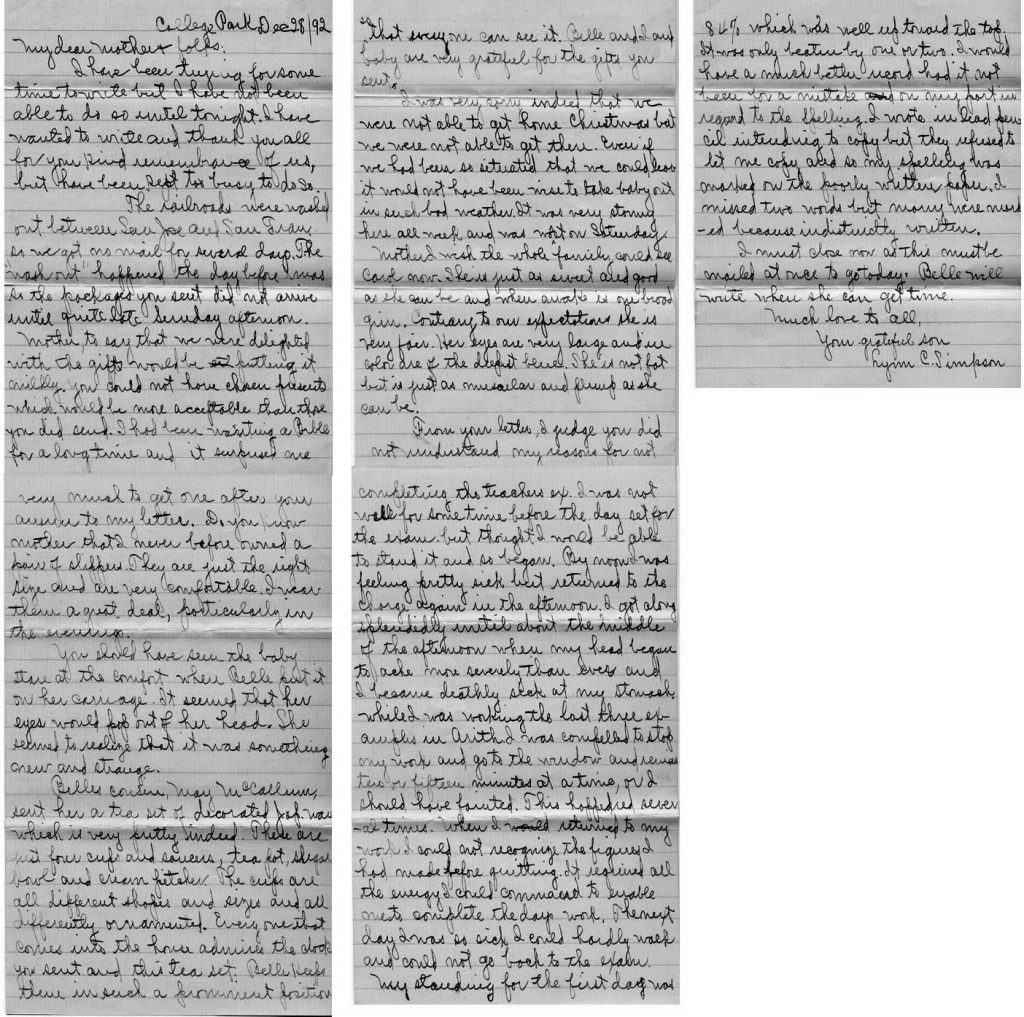 College Park Dec 28/92
My dear Mother & folks:
I have been trying for some
time to write but I have not been
able to do so until tonight. I have
wanted to write and thank you all
for your kind remembrance of us,
but have been too busy to do so.
The railroads were washed
out between San Jose and San Fran.
so we got no mail for several days. The
"wash out" happened the day before Xmas
so the packages you sent did not arrive
until quite late Sunday afternoon.
Mother, to say that we were delighted
with the gifts would be putting it
mildly. You could not have chosen presents
which would be more acceptable than those
you did send. I had been wanting a Bible
for a long time and it surprised me
very much to get one after your
answer to my letter. Do you know
mother that I never before owned a
pair of slippers. They are just the right
size and are very comfortable. I wear
them a great deal, particularly in
the evenings.
You should have seen the baby
stare at the comfort when Belle put it
on her carriage. It seemed that her
eyes would pop out of her head. She
seemed to realize that it was something
new and strange.
Belles cousin, May McCallum,
sent her a tea set of decorated Jap. war
which is very pretty indeed. There are
just four cups and saucers, tea pot, sugar
bowl and cream pitcher. The cups are
all different shapes and sizes and all
differently ornamented. Every one that
comes into the house admires the clock
you sent and this tea set. Belle keeps
them in such a prominent position
that everyone can see it. Belle and I and
baby are very grateful for the gifts you
sent.
I was very sorry indeed that we
were not able to get home Christmas but
we were not able to get there. Even if
we had been so situated that we could leave
it would not have been wise to take baby out
in such bad weather. It was very stormy
here all week and was worst on Saturday.
Mother I wish the whole family could see
Carol now. She is just as sweet and good
as she can be and when awake is one broad
grin. Contrary to our expectations she is
very fair. Her eyes are very large and in
color are of the deepest blue. She is not fat
but is just as muscular and plump as she
can be.
From your letter, I judge you did
not understand my reasons for not
completing the teachers ex. I was not
well for some time before the day set for
the exam. but thought I would be able
to stand it and so began. By noon I was
feeling pretty sick but returned to the
charge again in the afternoon. I got along
splendidly until about the middle
of the afternoon when my head began
to ache more severely than ever and
I became deathly sick at my stomach
while I was working the last three ex-
amples in Arith. I was compelled to stop
my work and go to the window and remain
ten or fifteen minutes at a time, or I
should have fainted. This happened sever
-al times. When I would returned to my
work I could not recognize the figures I
had made before quitting. It required all
the energy I could command to enable
me to complete the days work. The next
day I was so sick I could hardly walk
and could not go back to the exam.
My standing for the first day was
84% which was well up toward the top.
It was only beaten by one or two. I would
have a much better record had it not
been for a mistake on my part in
regard to the spelling. I wrote in lead pen
cil intending to copy but they refused to
let me copy and so my spelling was
marked on the poorly written paper. I
missed two words but many were mark
-ed because indistinctly written.
I must close now as this must be
mailed at once to go today. Belle will
write when she can get time.
Much love to all,
Your grateful son
Lynn C. Simpson